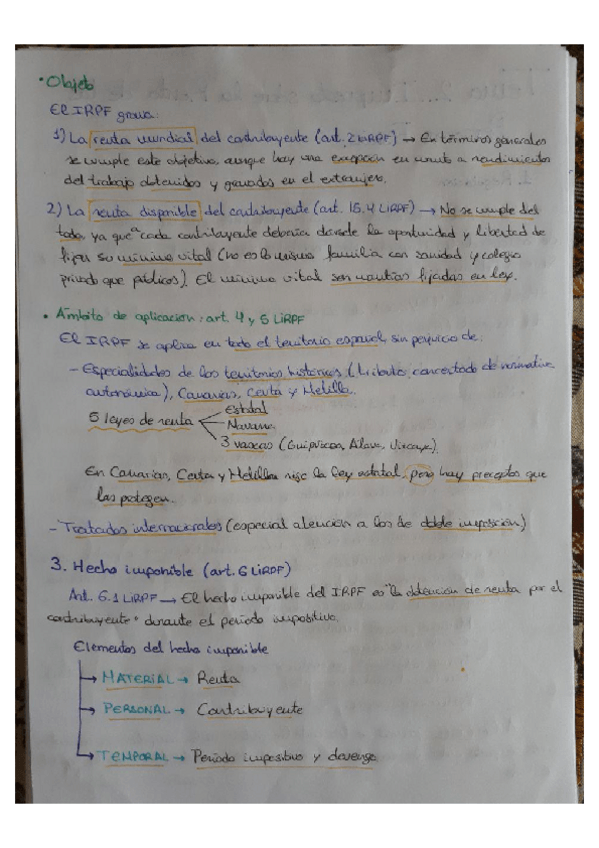 • Objeto
El IRPF grava:
1) La renta mundial del contribuyente (art. 2 LIRPF) → En términos generales
se cumple este objetivo, aunque hay una exención en cuanto a rendimientos
del trabajo obtenidos y gravados en el extranjero.
2) La renta disponible del contribuyente (art. 15.4 LIRPF) → No se cumple del
todo, ya que a cada contribuyente debería dársele la oportunidad y libertad de
fijar su mínimo vital (no es lo mismo familia con sanidad y colegio
privado que públicos). El mínimo vital son cuantías fijadas en ley.
• Ámbito de aplicación: art. 4 y 5 LIRPF
El IRPF se aplica en todo el territorio español, sin perjuicio de:
- Especialidades de los territorios históricos (tributo concertado de normativa
autonómica), Canarias, Ceuta y Melilla.
5 leyes de renta
Estatal
Navarra
3 vascas (Guipúzcoa, Álava, Vizcaya)
En Canarias, Ceuta y Melilla rige la ley estatal, pero hay preceptos que
las protegen.
- Tratados internacionales (especial atención a los de doble imposición)
3. Hecho imponible (art. 6 LIRPF)
Art. 6.1 LIRPF → El hecho imponible del IRPF es "la obtención de renta por el
contribuyente" durante el período impositivo.
Elementos del hecho imponible
→ MATERIAL → Renta
→ PERSONAL → Contribuyente
→ TEMPORAL → Período impositivo y devengo